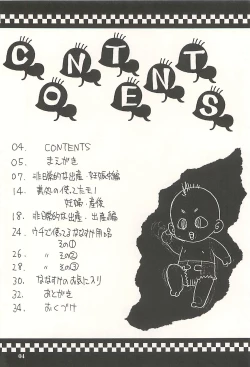 CONTENTS
04. CONTENTS
05. まえがき
07. 非日常的な出産・妊娠編
14. 妊婦・産後
18. 非日常的な出産・出産編
24. ウチで使ってるななすけ用品
その①
26. 〃 その②
28. 〃 その③
30. ななすけのお気に入り
32. あとがき
34. おくづけ
04